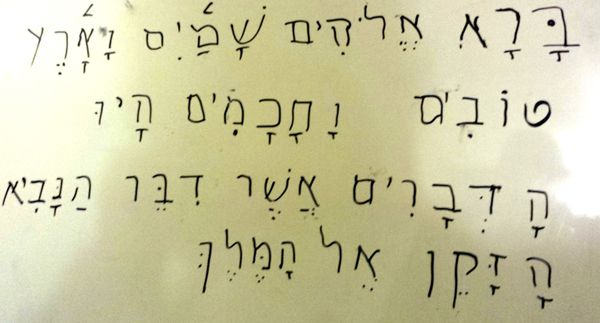 בָּרָא אֱלֹהִים שָׁמַ֫יִם וָאָ֫רֶץ
טוֹבִים וָחֲכָמִים הָיוּ
הָדְּבָרִים אֲשֶׁר דִּבֵּר הַנָּבִיא
הָזָּקֵן אֶל הָמֶּלֶךְ